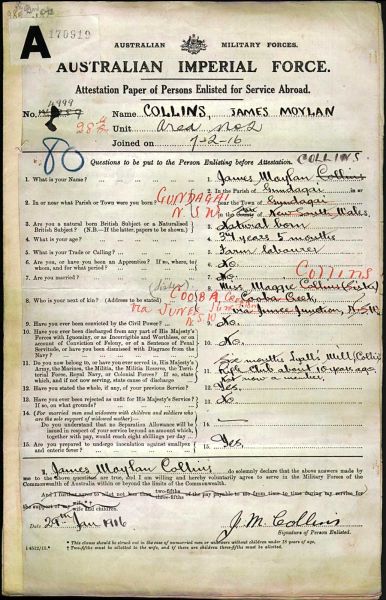 A 170919
AUSTRALIAN MILITARY FORCES.
AUSTRALIAN IMPERIAL FORCE.
Attestation Paper of Persons Enlisted for Service Abroad.
4999
No. Name COLLINS, JAMES MOYLAN
Unit Area No. 2
Joined on 7-2-16
80
Questions to be put to the Person Enlisting before Attestation.
COLLINS
1. What is your Name? 1. James Moylan Collins
2. In or near what Parish or Town were you born? 2. In the Parish of Gundagai
near the Town of Gundagai
in the County of New South Wales
GUNDAGAI
N.S.W
3. Are you a natural born British Subject or a Naturalised British Subject? (N.B.—If the latter, papers to be shown) 3. Natural born
4. What is your age? 4. 34 years 5 months
5. What is your Trade or Calling? 5. Farm labourer
6. Are you, or have you been an Apprentice? If so, where, to whom, and for what period? 6. No.
7. Are you married? 7. No.
COLLINS
(Sister)
8. Who is your next of kin? (Address to be stated) 8. Miss Maggie Collins (Sister)
Cooba Creek
via Junee Junction, N.S.W
COOBA CREEK
via JUNEE JUNCTION
N.S.W
9. Have you ever been convicted by the Civil Power? 9. No.
10. Have you ever been discharged from any part of His Majesty's Forces with Ignominy, or as Incorrigible and Worthless, or on account of Conviction of Felony, or of a Sentence of Penal Servitude, or have you been dismissed with Disgrace from the Navy? 10. No.
11. Do you now belong to, or have you ever served in, His Majesty's Army, the Marines, the Militia, the Militia Reserve, the Territorial Force, Royal Navy, or Colonial Forces? If so, state which, and if not now serving, state cause of discharge 11. Six months Lyall's Mill (Collie)
Rifle Club about 10 years ago
Not now a member
12. Have you stated the whole, if any, of your previous Service? 12. Yes.
13. Have you ever been rejected as unfit for His Majesty's Service? If so, on what grounds? 13. No
14. (For married men and widowers with children and soldiers who are the sole support of widowed mother)—
Do you understand that no Separation Allowance will be issued in respect of your service beyond an amount which, together with pay, would reach eight shillings per day 14.
15. Are you prepared to undergo inoculation against smallpox and enteric fever? 15. Yes.
I, James Moylan Collins do solemnly declare that the above answers made by me to the above questions are true, and I am willing and hereby voluntarily agree to serve in the Military Forces of the Commonwealth of Australia within or beyond the limits of the Commonwealth.
And I further agree to allot not less than two-fifths of the pay payable to me from time to time during my service for the support of my wife. wife and children.
Date 29th Jan 1916
J. M. Collins
Signature of Person Enlisted.
* This clause should be struck out in the case of unmarried men or widowers without children under 18 years of age.
† Two-fifths must be allotted to the wife, and if there are children three-fifths must be allotted.